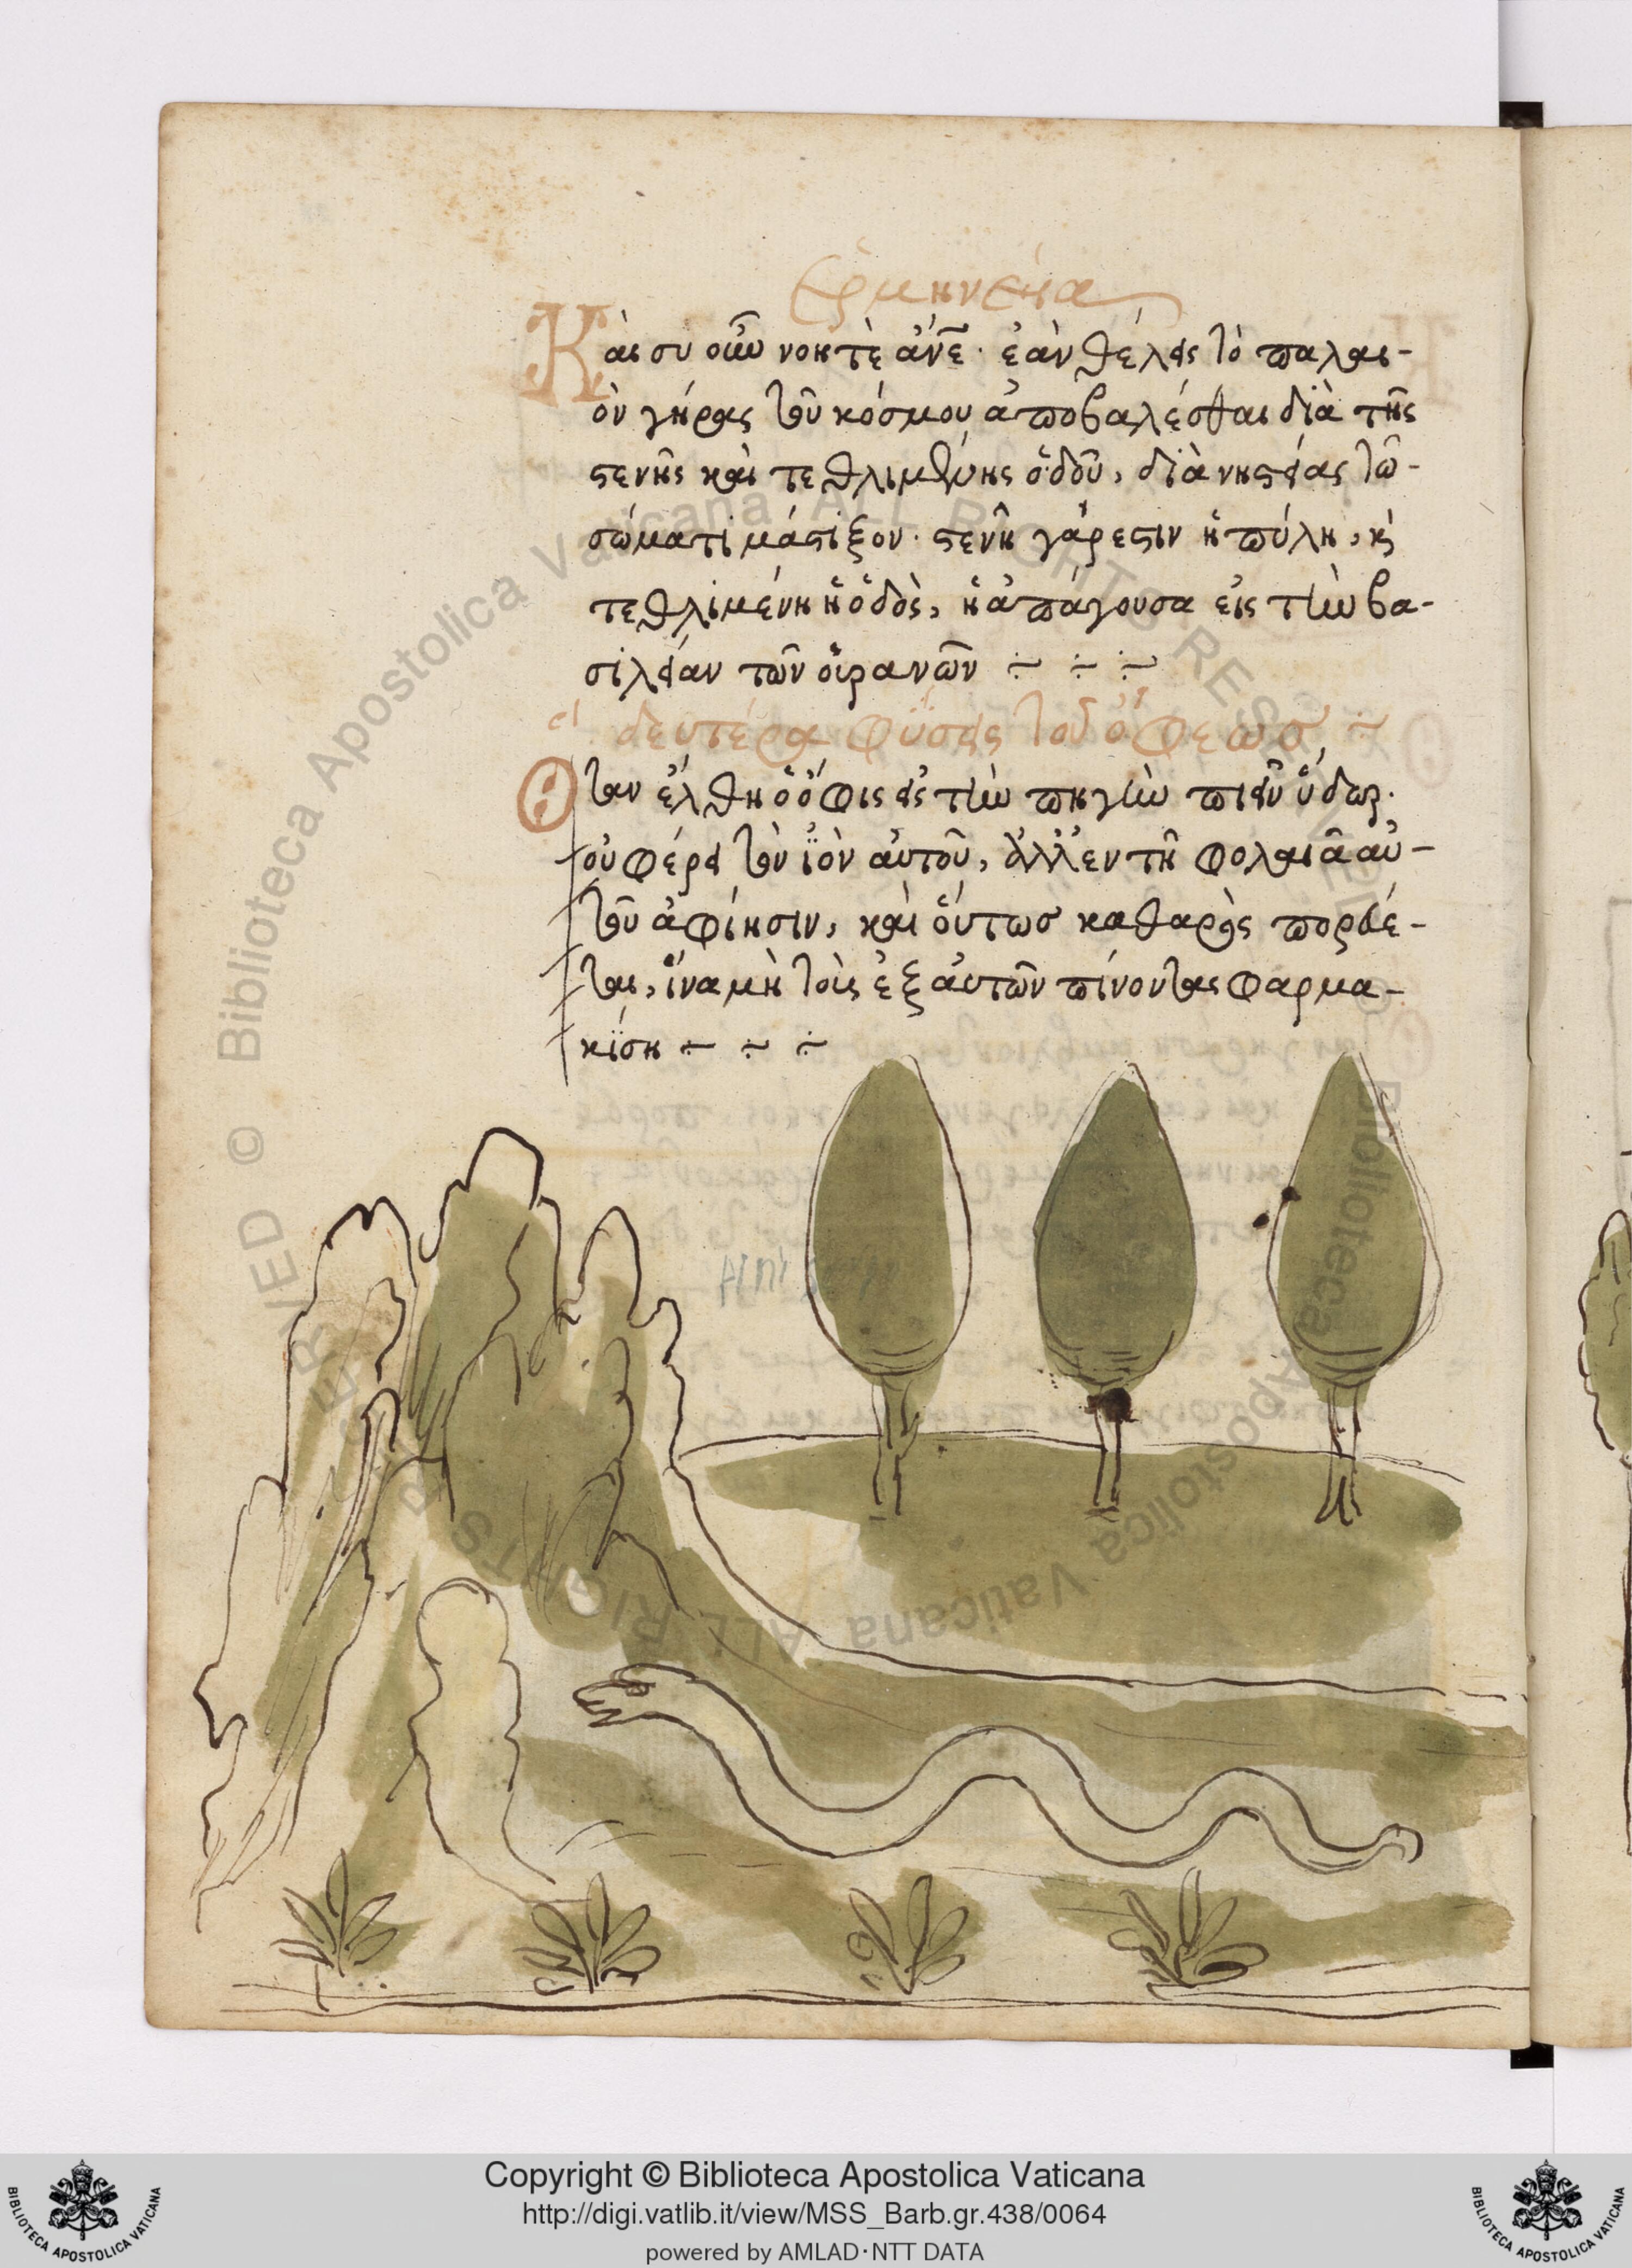 Ἑρμηνεία
Καὶ συ οὖν νοητὲ ἄνε· ἐὰν θέλεις τὸ παλαι-
ὸν γήρας τοῦ κόσμου ἀποβαλέσθαι διὰ τῆς
στενῆς καὶ τεθλιμμένης ὁδοῦ, διὰ νηστείας τῶ
σώματι μάστιξον· στενὴ γάρ εστιν ἡ πύλη, κὶ
τεθλιμένη ἡ ὁδὸς, ἡ ἀπάγουσα εἰς τὴν βα-
σιλείαν τῶν οὐρανῶν
δευτέρα φύσεις τοῦ ὄφεως
Ὅταν ἔλθη ὁ ὄφις εἰς τὴν πηγὴν πιεῖν ὕδωρ.
οὐ φέρει τὸν ἰὸν αὐτοῦ, ἀλλ' ἐν τῆ φολαιᾶ αὐ-
τοῦ ἀφίησιν, καὶ οὕτωσ καθαρὸς πορεύε-
ται, ἵνα μὴ τοὺς ἐξ αὐτῶν πίνοντας φαρμα-
κίση
Copyright © Biblioteca Apostolica Vaticana
http://digi.vatlib.it/view/MSS_Barb.gr.438/0064
powered by AMLAD·NTT DATA
BIBLIOTECA APOSTOLICA VATICANA
BIBLIOTECA APOSTOLICA VATICANA
Biblioteca Apostolica Vaticana ALL RIGHTS RESERVED ©
Biblioteca Apostolica Vaticana ALL RIGHTS RESERVED ©